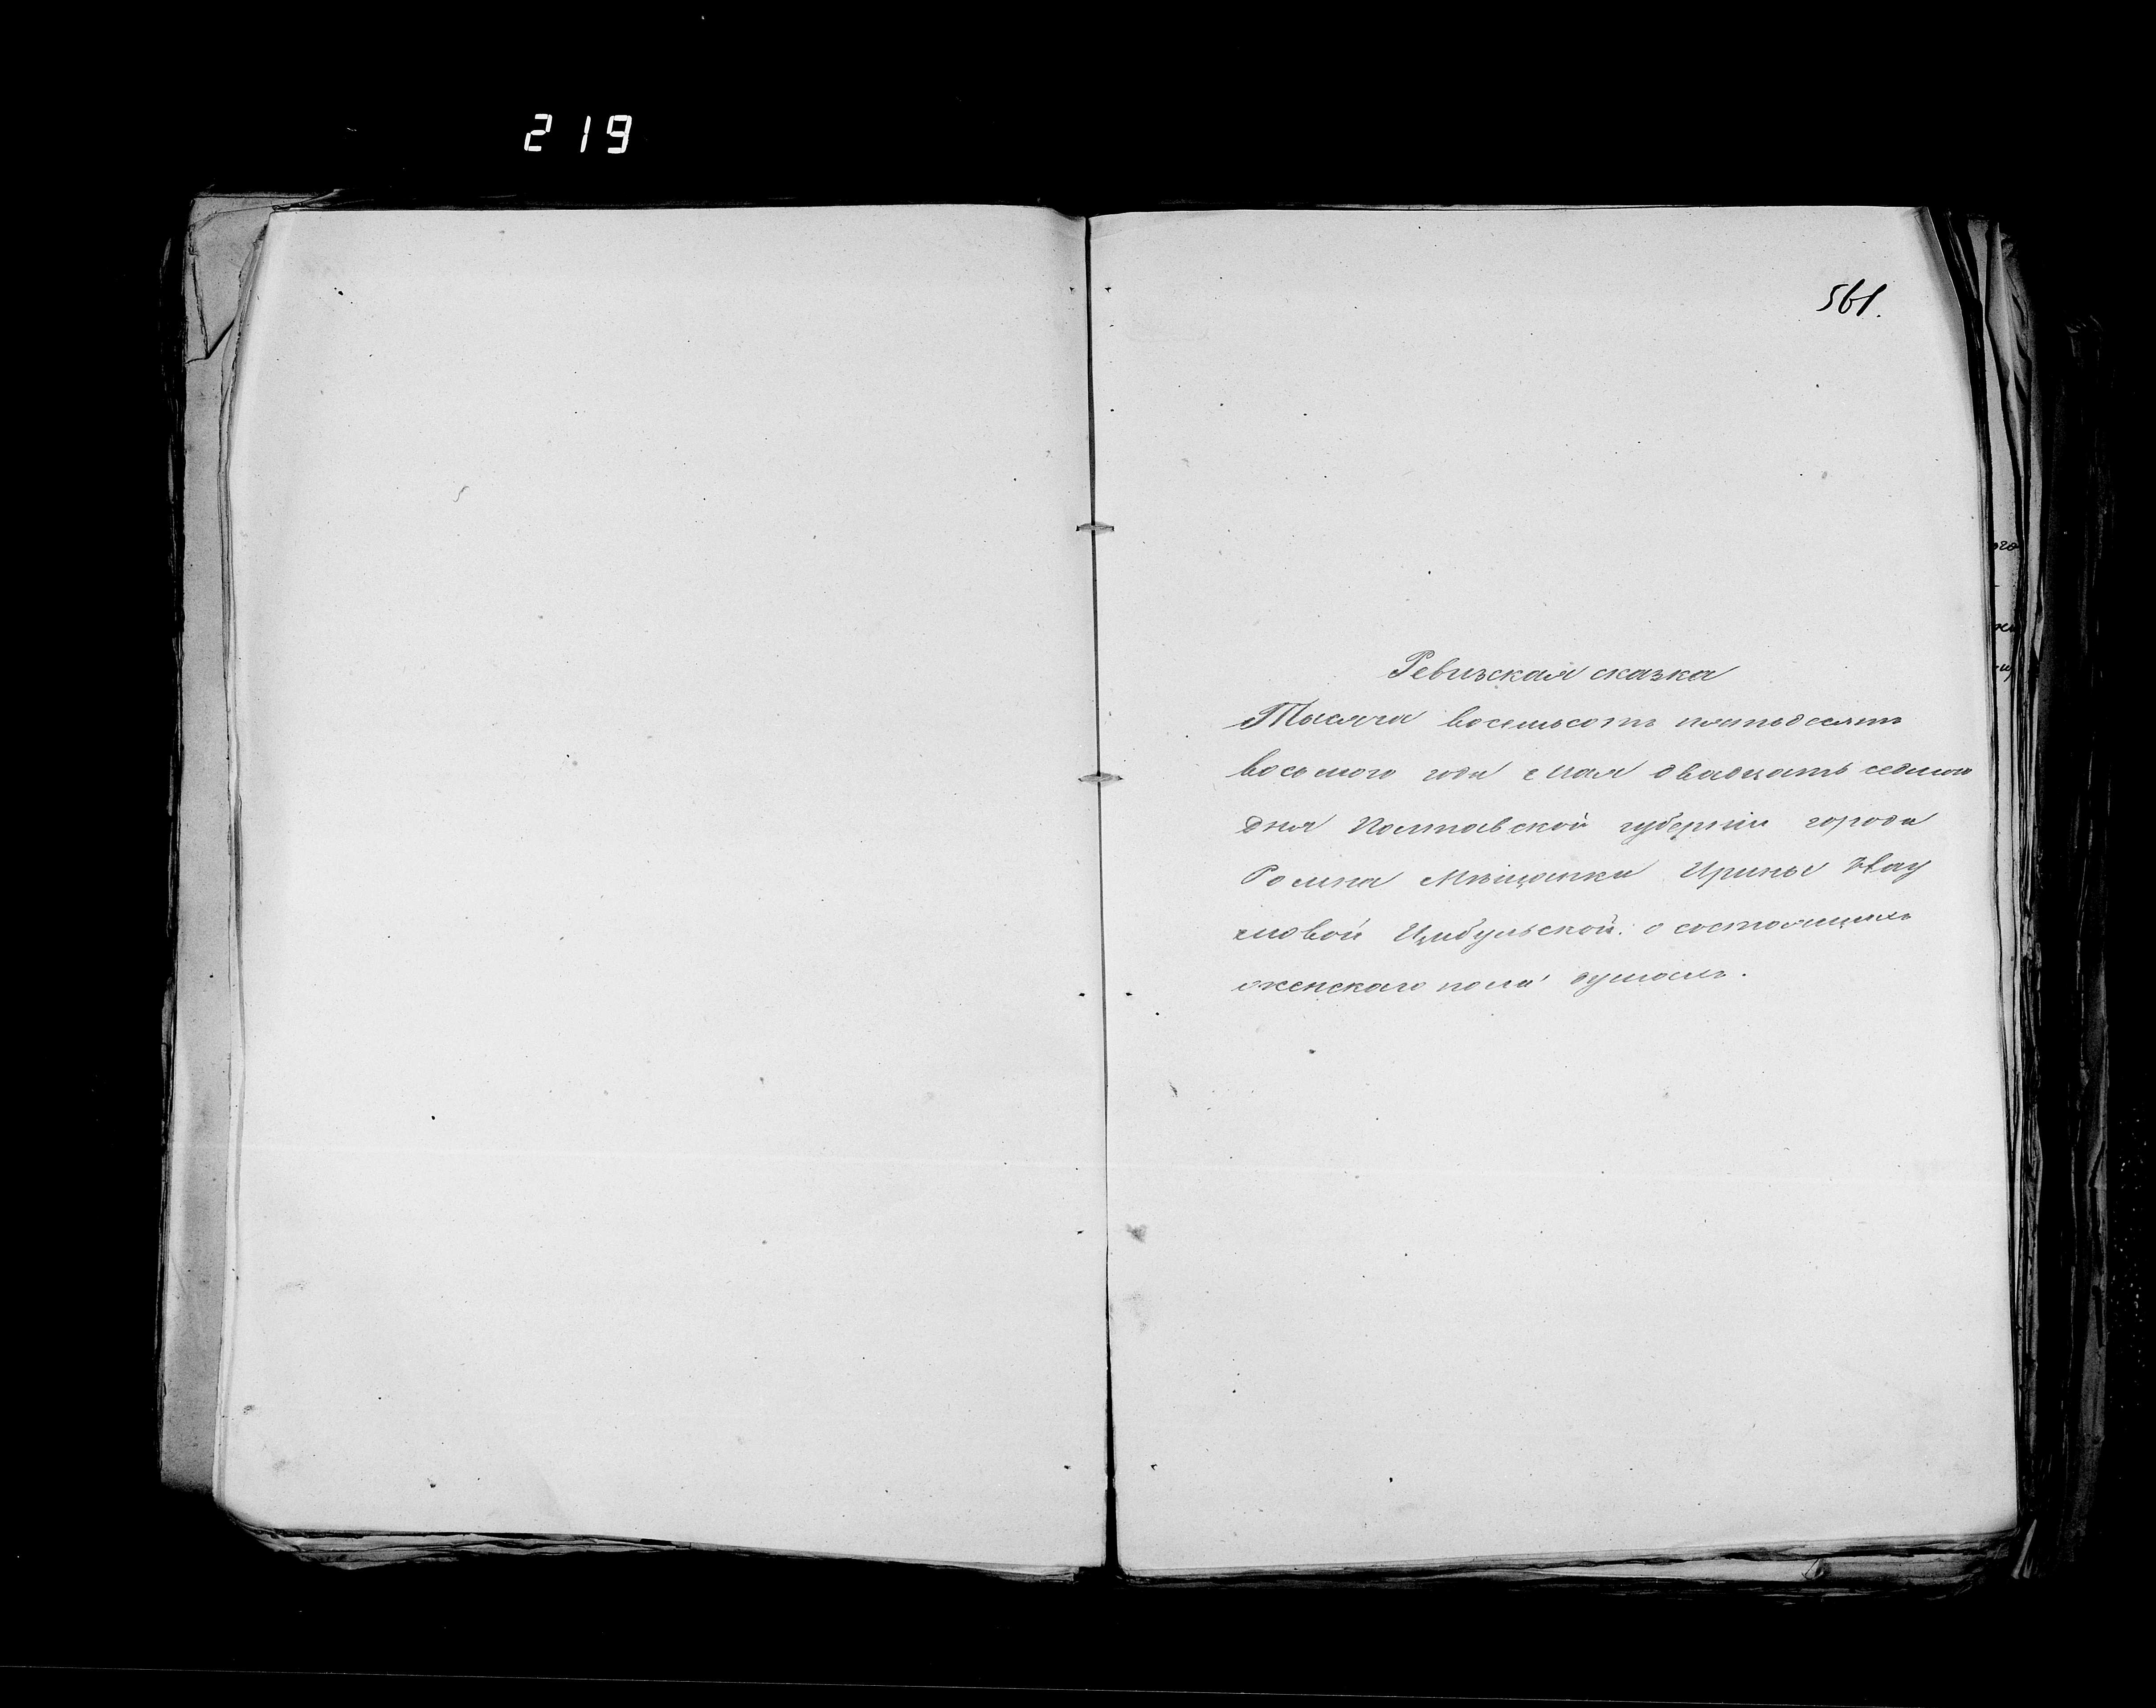 219
561.
Ревизская сказка
Тысяча восемьсотъ пятьдесятъ
восьмого года мая двадцать седмого
дня Полтавской губерніи города
Ромна Мѣщанки Ирины Нау
мовой Цибульской. о состоящихъ
женскаго пола душахъ.